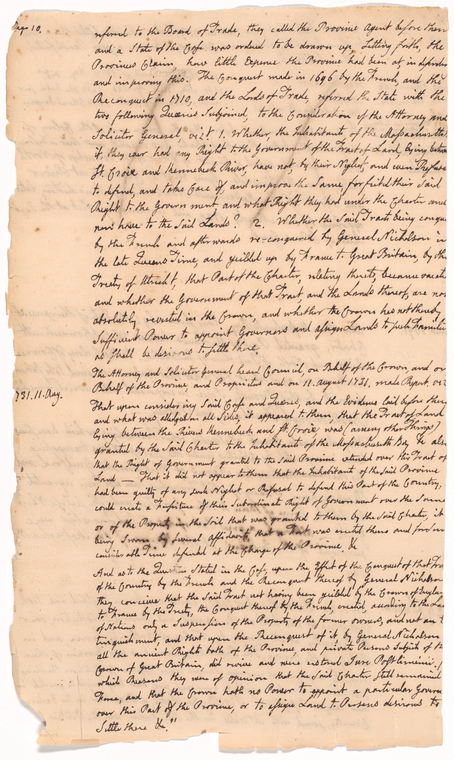 Page 10,
referred to the Board of Trade, they called the Province Agent before them
and a State of the Case was ordered to be drawn up, setting forth, the
Provinces Claim, how little Expence the Province had been at in defending
and improving this. The Conquest made in 1696 by the French, and the
Reconquest in 1710, and the Lords of Trade, referred the State with the
two following Queries Subjoined, to the Consideration of the Attorney and
Solicitor General, vizt. 1. Whether, the Inhabitants of the Massachusetts
if, they ever had any Right to the Government of the Tract of Land, lying between
St. Croix and Kennebeck River, have not, by their Neglect and even Refusal
to defend, and take Care of, and improve the Same, forfeited their Said
Right to the Government and what Right they had under the Charter and
now have to the Said Lands? 2. Whether the Said Tract being conquer
by the French and afterwards re-conquered by General Nicholson in
the late Queens Time, and yeilded up by France to Great Britain, by the
Treaty of Utrecht, that Part of the Charter, relating thereto became vacated
and whether the Government of that Tract and the Lands thereof, are not
absolutely revested in the Crown, and whether the Crown has not thereby
Sufficient Power to appoint Governors and assign Lands to such Families
as shall be desirous to settle there.
The Attorney and Solicitor General heard Council, on Behalf of the Crown, and on
Behalf of the Province, and Proprietors and on 11. August 1731, made Report, viz
1731. 11. Aug.
That upon considering Said Case and Queries, and the Evidence laid before them
and what was alledged on all Sides, it appeared to them that the Tract of Land
lying between the Rivers Kennebeck and St. Croix was (among other Things)
granted by the Said Charter to the Inhabitants of the Massachusetts Bay, & also
that the Right of Government granted to the Said Province extended over this Tract of
Land — That it did not appear to them that the Inhabitants of the Said Province
had been guilty of any such Neglect or Refusal to defend this Part of the Country,
could create a Forfeiture of their Subordinate Right of Government over the Same
or of the Property in the Soil that was granted to them by the Said Charter, it
being Sworn by Several affidavits, that a Fort was erected there and for some
considerable Time defended at the Charge of the Province, &
And as to the Question Stated in the Case, upon the Effect of the Conquest of that Tract
of the Country by the French and the Reconquest thereof by General Nicholson
they conceive that the Said Tract not having been yielded by the Crown of England
to France by the Treaty, the Conquest thereof by the French, created, according to the Law
of Nations only a Suspension of the Property of the former owners, and not an
tinguishment, and that upon the Reconquest of it by General Nicholson
all the ancient Right both of the Province, and private Persons Subjects of the
Crown of Great Britain, did revive and were restored Jure Postliminii.
which Reasons they were of opinion that the Said Charter still remained
Force, and that the Crown hath no Power to appoint a particular Govern
over this Part of the Province, or to assign Land to Persons desirous to
Settle there &."